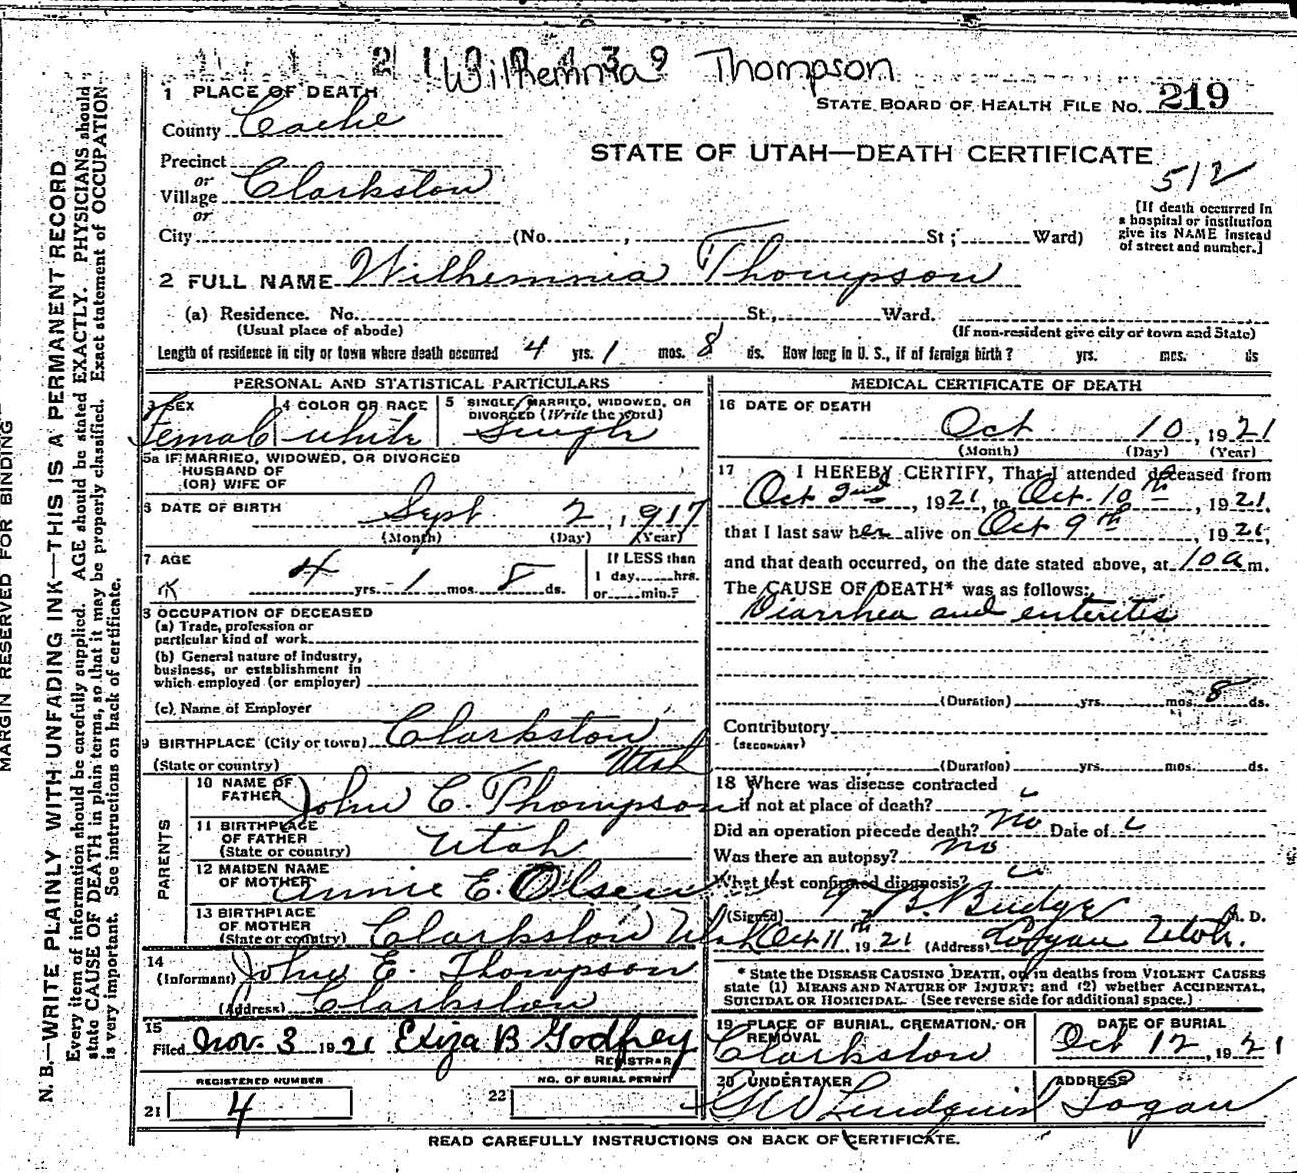 2 1 0 0 4 3 9
Wilhemnia Thompson
1 PLACE OF DEATH
STATE BOARD OF HEALTH FILE No. 219
County Cache
STATE OF UTAH—DEATH CERTIFICATE
512
Precinct
or
Village Clarkston
or
City (No. , St; Ward)
[If death occurred in
a hospital or institution
give its NAME instead
of street and number.]
2 FULL NAME Wilhemnia Thompson
(a) Residence. No. St., Ward.
(Usual place of abode) (If non-resident give city or town and State)
Length of residence in city or town where death occurred 4 yrs. 1 mos. 8 ds. How long in U. S., if of foreign birth? yrs. mos. ds
PERSONAL AND STATISTICAL PARTICULARS
3 SEX 4 COLOR OR RACE 5 SINGLE, MARRIED, WIDOWED, OR
DIVORCED (Write the word)
Female white Single
5a IF MARRIED, WIDOWED, OR DIVORCED
HUSBAND OF
(OR) WIFE OF
6 DATE OF BIRTH Sept 2, 1917
(Month) (Day) (Year)
7 AGE
4 yrs. 1 mos. 8 ds.
If LESS than
1 day, hrs.
or min.?
8 OCCUPATION OF DECEASED
(a) Trade, profession or
particular kind of work
(b) General nature of industry,
business, or establishment in
which employed (or employer)
(c) Name of Employer
9 BIRTHPLACE (City or town) Clarkston
(State or country) Utah
PARENTS
10 NAME OF
FATHER John E. Thompson
11 BIRTHPLACE
OF FATHER
(State or country) Utah
12 MAIDEN NAME
OF MOTHER Annie E. Olsen
13 BIRTHPLACE
OF MOTHER
(State or country) Clarkston Utah
14
(Informant) John E. Thompson
(Address) Clarkston
15
Filed Nov. 3 1921 Eliza B Godfrey
REGISTRAR
REGISTERED NUMBER NO. OF BURIAL PERMIT
21 4 22
MEDICAL CERTIFICATE OF DEATH
16 DATE OF DEATH
Oct 10, 1921
(Month) (Day) (Year)
17 I HEREBY CERTIFY, That I attended deceased from
Oct 2nd, 1921, to Oct. 10th, 1921,
that I last saw her alive on Oct 9th, 1921,
and that death occurred, on the date stated above, at 10 a m.
The CAUSE OF DEATH* was as follows:
Diarrhea and enteritis
(Duration) yrs. mos. 8 ds.
Contributory
(SECONDARY)
(Duration) yrs. mos. ds.
18 Where was disease contracted
if not at place of death?
Did an operation precede death? no Date of
Was there an autopsy? no
What test confirmed diagnosis?
(Signed) B. Budge M. D.
Oct 11th 1921 (Address) Logan Utah.
* State the DISEASE CAUSING DEATH, or in deaths from VIOLENT CAUSES
state (1) MEANS AND NATURE OF INJURY; and (2) whether ACCIDENTAL,
SUICIDAL OR HOMICIDAL. (See reverse side for additional space.)
19 PLACE OF BURIAL, CREMATION, OR
REMOVAL
Clarkston
DATE OF BURIAL
Oct 12, 1921
20 UNDERTAKER ADDRESS
G W Lindquist Logan
READ CAREFULLY INSTRUCTIONS ON BACK OF CERTIFICATE.
MARGIN RESERVED FOR BINDING
N. B.—WRITE PLAINLY WITH UNFADING INK—THIS IS A PERMANENT RECORD
Every item of information should be carefully supplied. AGE should be stated EXACTLY. PHYSICIANS should
state CAUSE OF DEATH in plain terms, so that it may be properly classified. Exact statement of OCCUPATION
is very important. See instructions on back of certificate.